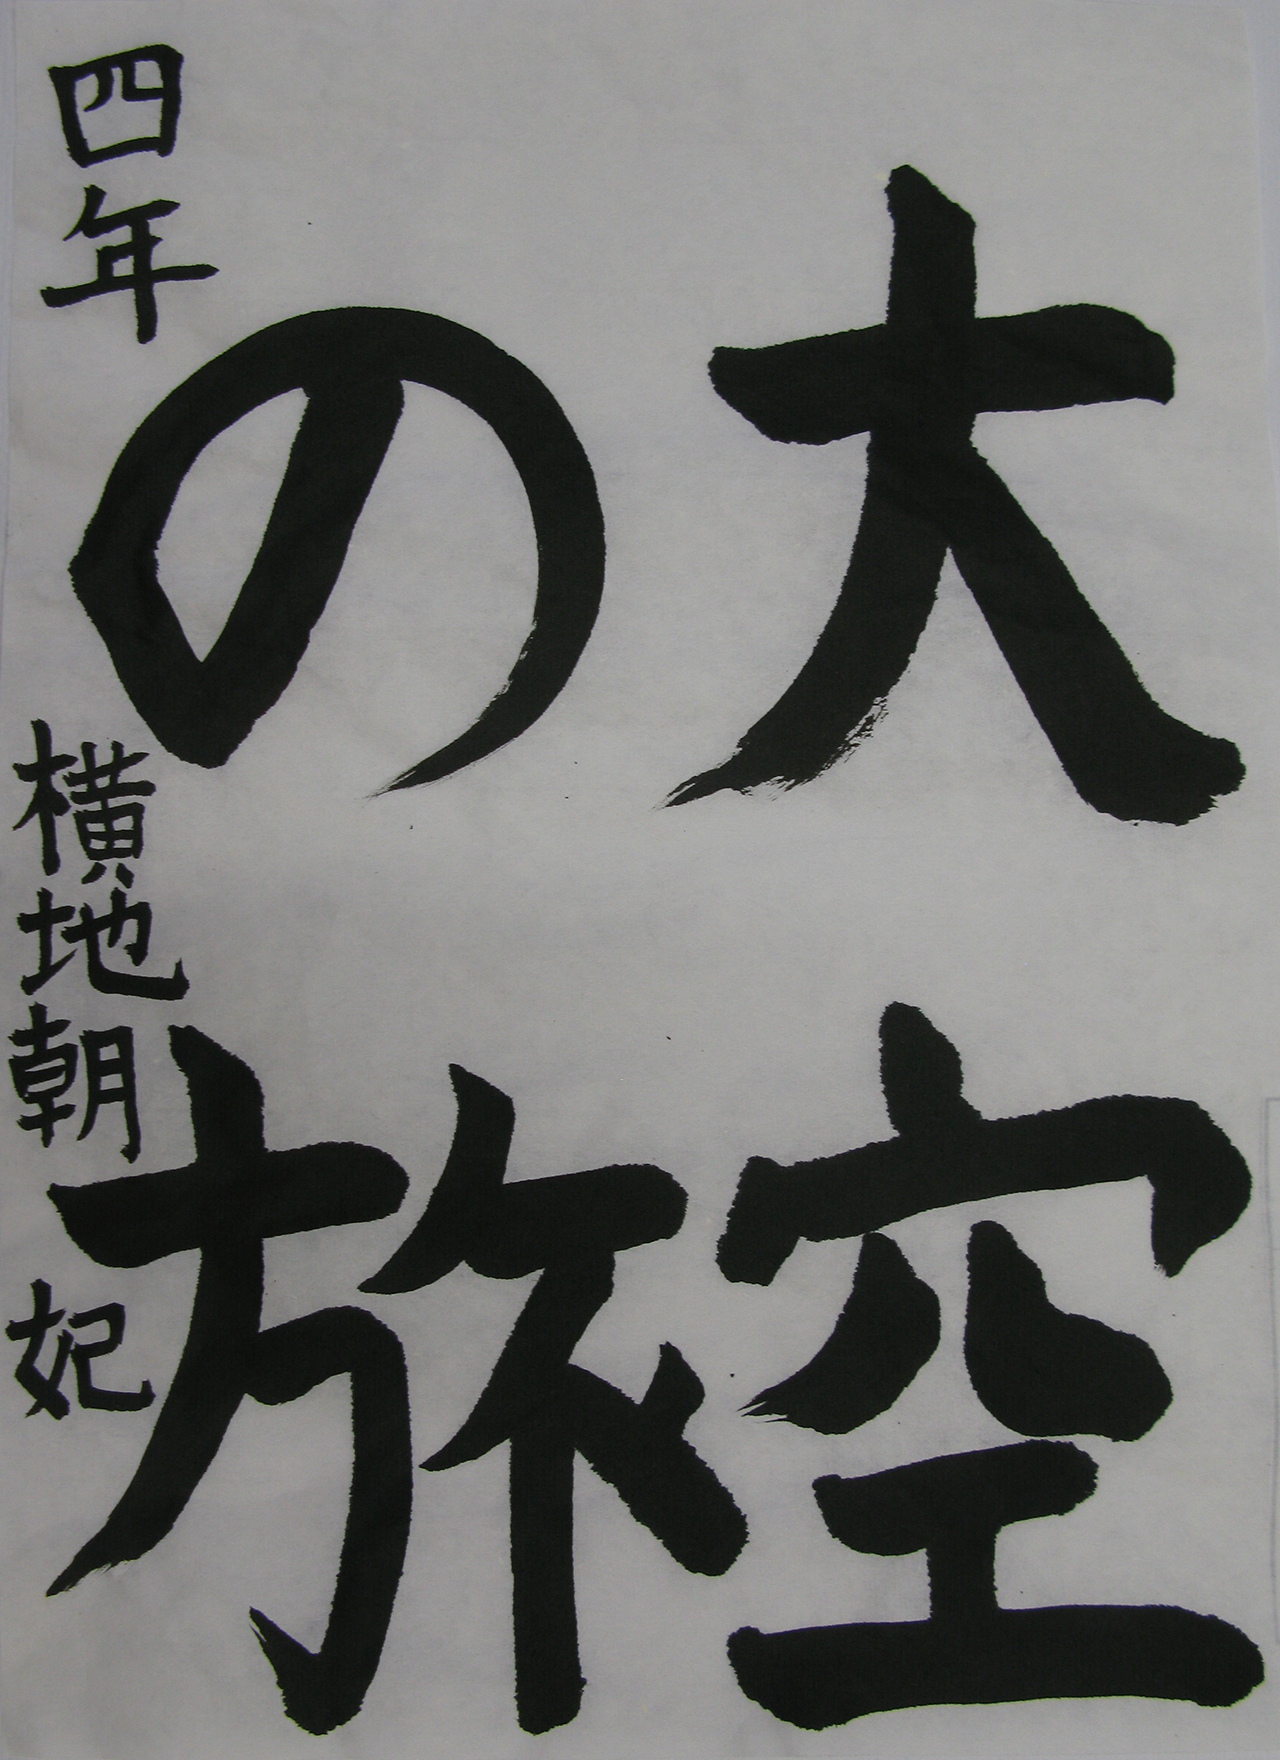 大空
の旅
四年 横地朝妃